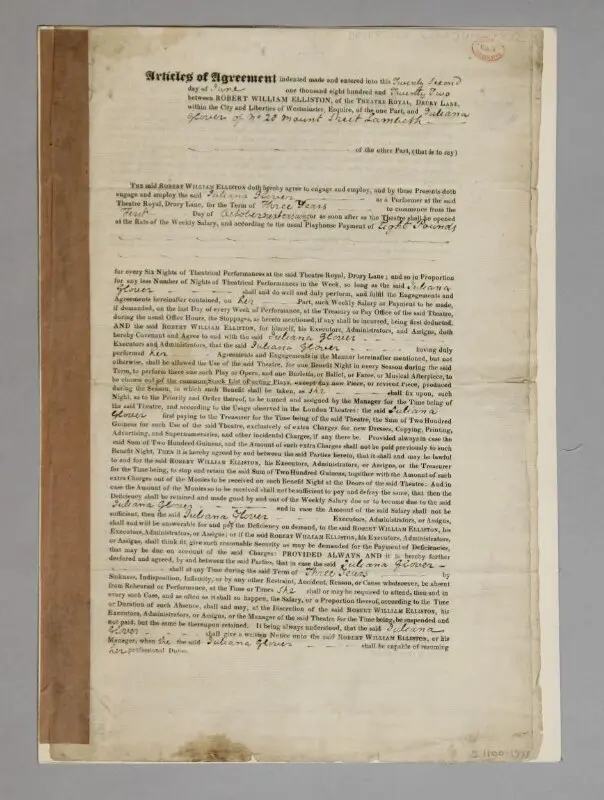 Articles of Agreement indented made and entered into this Twenty Second
day of June one thousand eight hundred and Twenty Two
between ROBERT WILLIAM ELLISTON, of the THEATRE ROYAL, DRURY LANE,
within the City and Liberties of Westminster, Esquire, of the one Part, and Juliana
Glover of No 20 Mount Street Lambeth
of the other Part, (that is to say)
THE said ROBERT WILLIAM ELLISTON doth hereby agree to engage and employ, and by these Presents doth
engage and employ the said Juliana Glover as a Performer at the said
Theatre Royal, Drury Lane, for the Term of Three Years to commence from the
First Day of October next ensuing or as soon after as the Theatre shall be opened
at the Rate of the Weekly Salary, and according to the usual Playhouse Payment of Eight Pounds
for every Six Nights of Theatrical Performances at the said Theatre Royal, Drury Lane; and so in Proportion
for any less Number of Nights of Theatrical Performances in the Week, so long as the said Juliana
Glover shall and do well and duly perform, and fulfil the Engagements and
Agreements hereinafter contained, on her Part, such Weekly Salary or Payment to be made,
if demanded, on the last Day of every Week of Performance, at the Treasury or Pay Office of the said Theatre,
during the usual Office Hours, the Stoppages, as herein mentioned, if any shall be incurred, being first deducted.
AND the said ROBERT WILLIAM ELLISTON, for himself, his Executors, Administrators, and Assigns, doth
hereby Covenant and Agree to and with the said Juliana Glover
Executors and Administrators, that the said Juliana Glover having duly
performed her Agreements and Engagements in the Manner hereinafter mentioned, but not
otherwise, shall be allowed the Use of the said Theatre, for one Benefit Night in every Season during the said
Term, to perform there one such Play or Opera, and one Burletta, or Ballet, or Farce, or Musical Afterpiece, to
be chosen out of the common Stock List of acting Plays, except any new Piece, or revived Piece, produced
during the Season, in which such Benefit shall be taken, as she shall fix upon, such
Night, as to the Priority and Order thereof, to be named and assigned by the Manager for the Time being of
the said Theatre, and according to the Usage observed in the London Theatres: the said Juliana
Glover first paying to the Treasurer for the Time being of the said Theatre, the Sum of Two Hundred
Guineas for such Use of the said Theatre, exclusively of extra Charges for new Dresses, Copying, Printing,
Advertising, and Supernumeraries, and other incidental Charges, if any there be. Provided always in case the
said Sum of Two Hundred Guineas, and the Amount of such extra Charges shall not be paid previously to such
Benefit Night, THEN it is hereby agreed by and between the said Parties hereto, that it shall and may be lawful
to and for the said ROBERT WILLIAM ELLISTON, his Executors, Administrators, or Assigns, or the Treasurer
for the Time being, to stop and retain the said Sum of Two Hundred Guineas, together with the Amount of such
extra Charges out of the Monies to be received on such Benefit Night at the Doors of the said Theatre: And in
case the Amount of the Monies so to be received shall not be sufficient to pay and defray the same, that then the
Deficiency shall be retained and made good by and out of the Weekly Salary due or to become due to the said
Juliana Glover and in case the Amount of the said Salary shall not be
sufficient, then the said Juliana Glover Executors, Administrators, or Assigns,
shall and will be answerable for and pay the Deficiency on demand, to the said ROBERT WILLIAM ELLISTON, his
Executors, Administrators, or Assigns; or if the said ROBERT WILLIAM ELLISTON, his Executors, Administrators,
or Assigns, shall think fit, give such reasonable Security as may be demanded for the Payment of Deficiencies,
that may be due on account of the said Charges: PROVIDED ALWAYS AND it is hereby further
declared and agreed, by and between the said Parties, that in case the said Juliana Glover
shall at any Time during the said Term of Three Years by
Sickness, Indisposition, Infirmity, or by any other Restraint, Accident, Reason, or Cause whatsoever, be absent
from Rehearsal or Performance, at the Time or Times she shall or may be required to attend, then and in
every such Case, and as often as it shall so happen, the Salary, or a Proportion thereof, according to the Time
or Duration of such Absence, shall and may, at the Discretion of the said ROBERT WILLIAM ELLISTON, his
Executors, Administrators, or Assigns, or the Manager of the said Theatre for the Time being, be suspended and
not paid, but the same be thereupon retained. It being always understood, that the said Juliana
Glover shall give a written Notice unto the said ROBERT WILLIAM ELLISTON, or his
Manager, when she the said Juliana Glover shall be capable of resuming
her professional Duties.